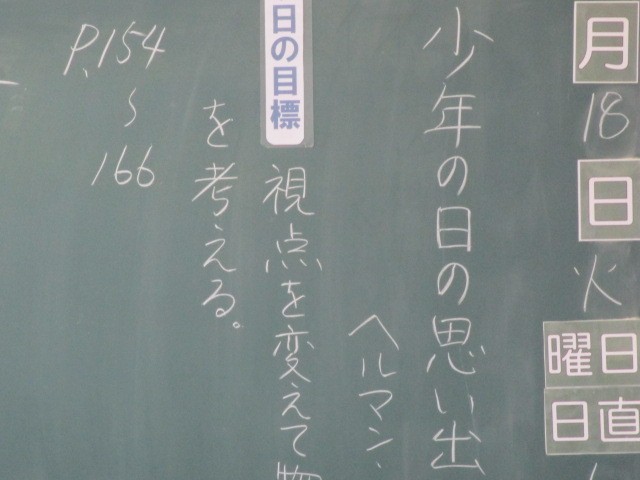 月18日火曜日
日直
少年の日の思い出
ヘルマン・
日の目標
視点を変えて物
を考える。
P.154
〜
166